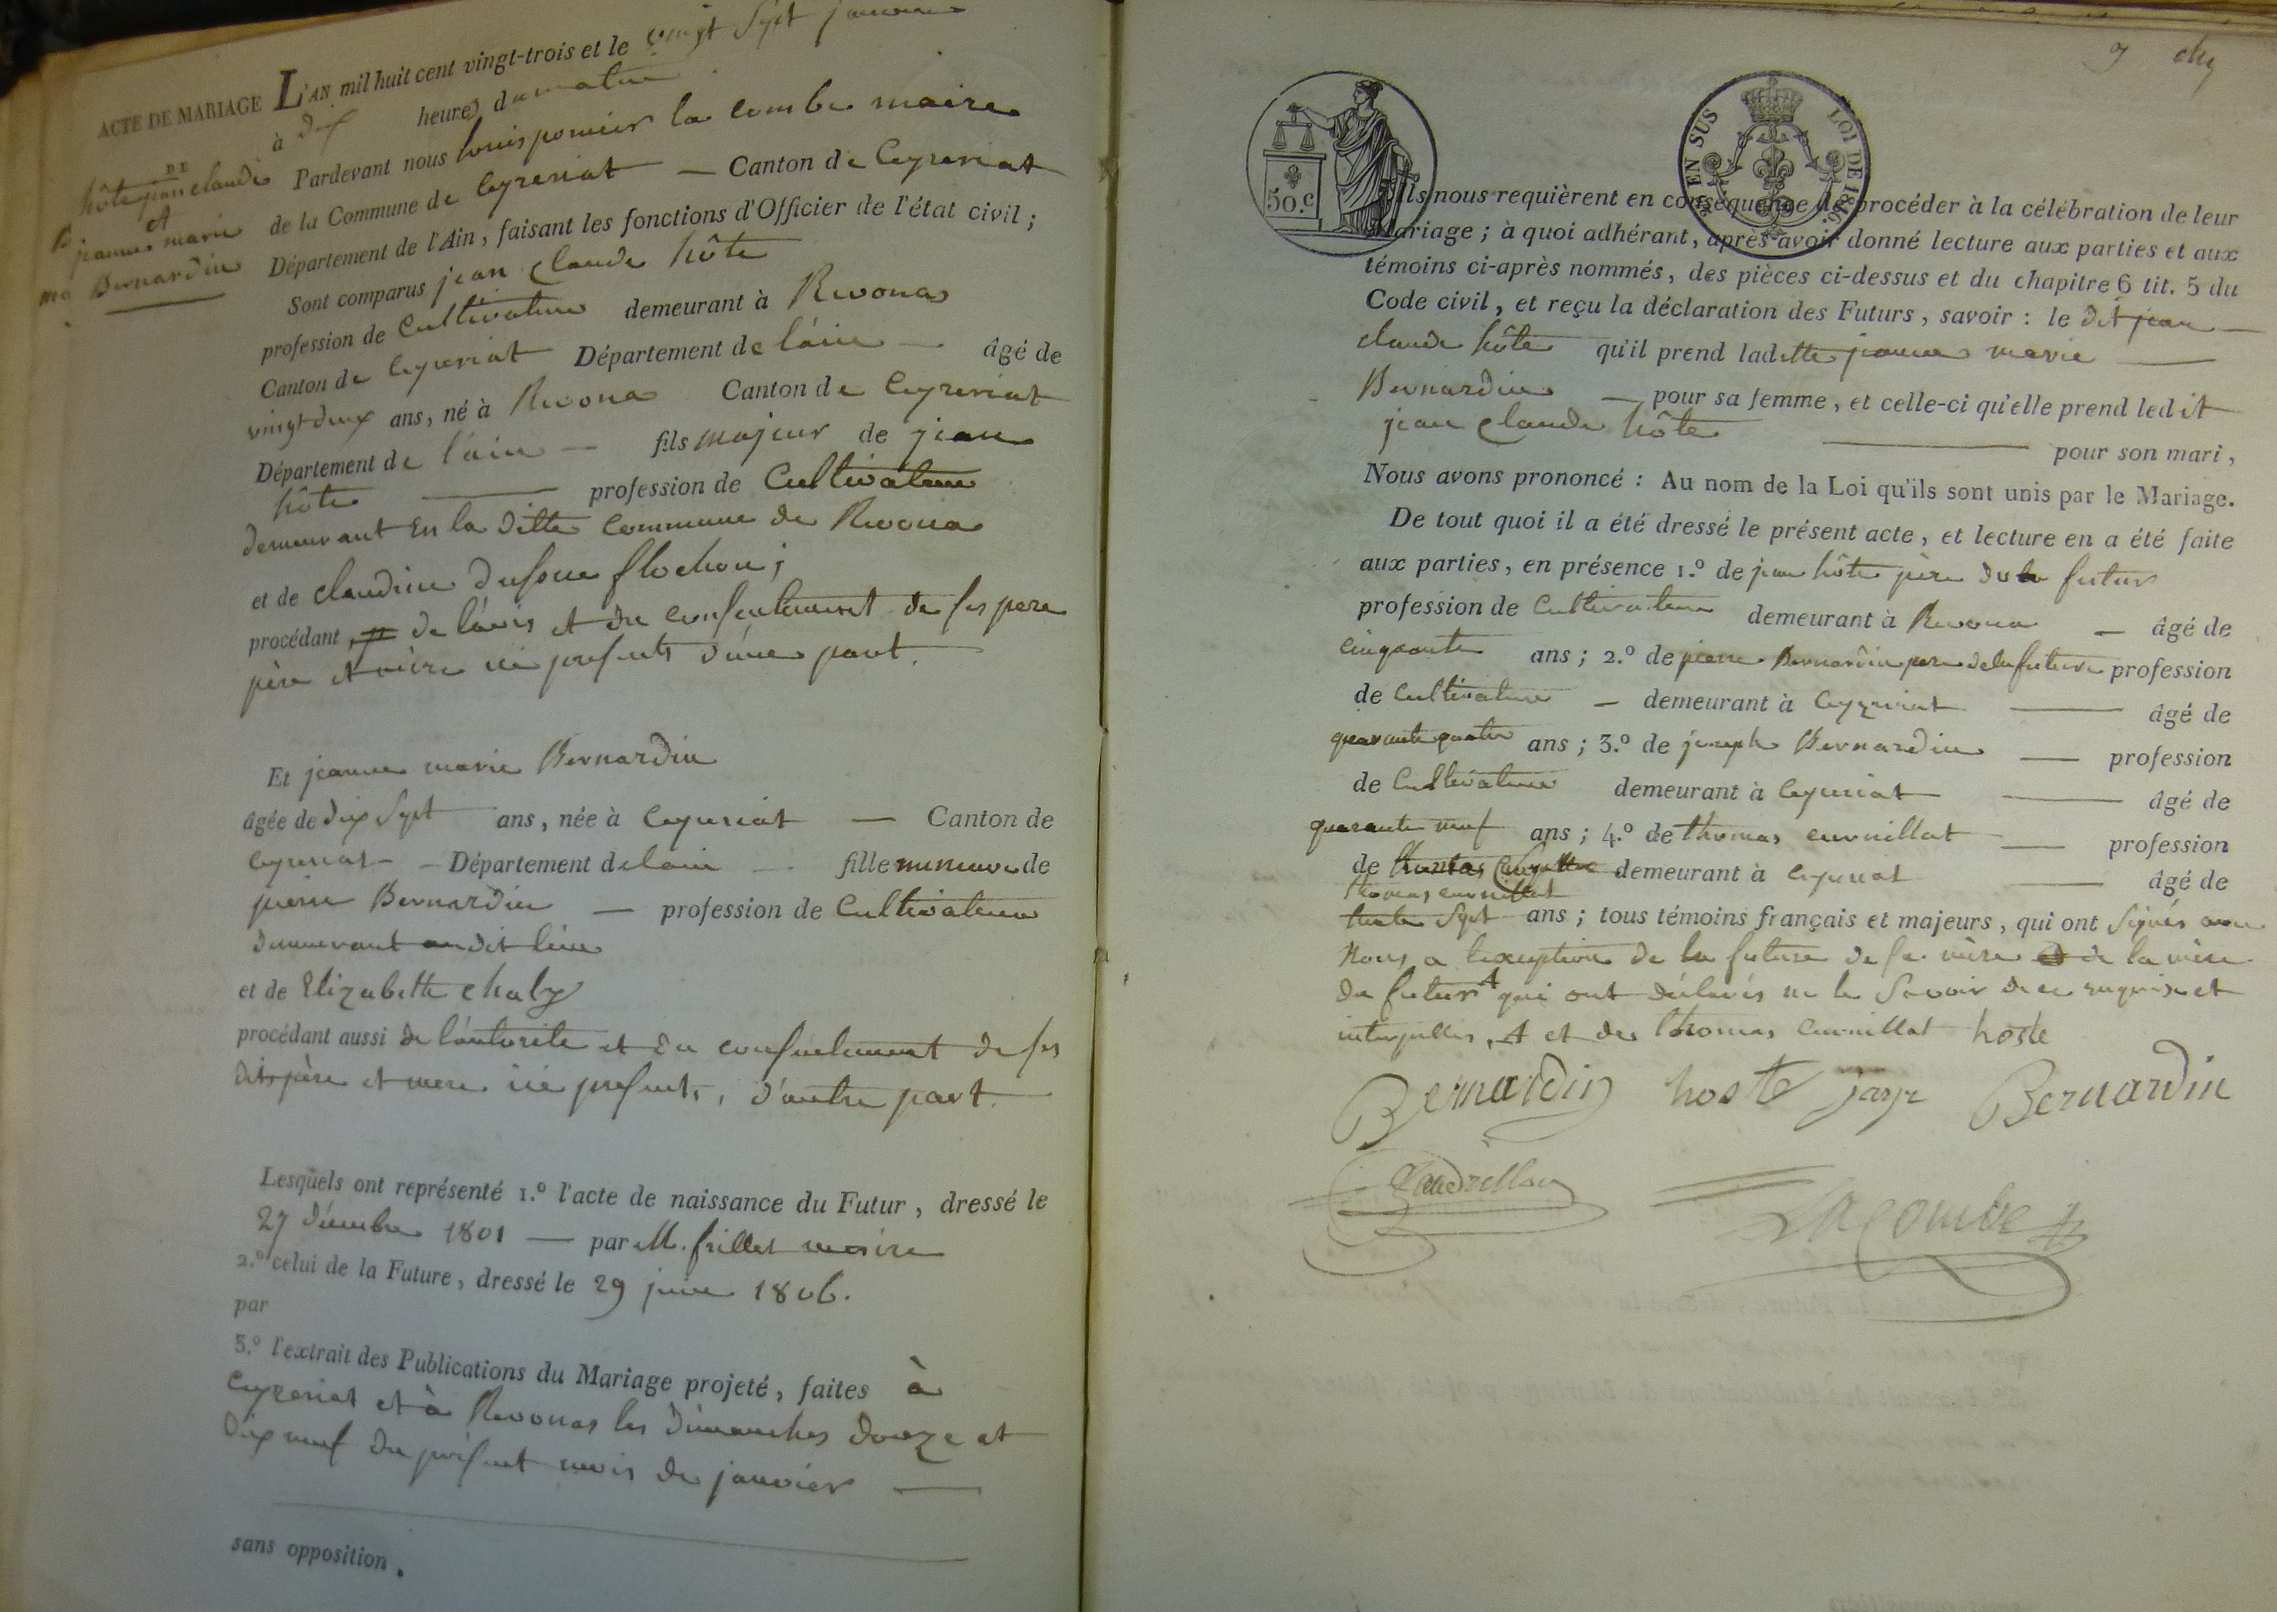 ACTE DE MARIAGE L'AN mil huit cent vingt-trois et le vingt sept janvier
à dix heures du matin
DE
hôte jean claude
et
jeanne marie
Bernardin
Pardevant nous louis pomier la combe maire
de la Commune de Ceyzeriat — Canton de Ceyzeriat
Département de l'Ain, faisant les fonctions d'Officier de l'état civil ;
Sont comparus jean claude hôte
profession de Cultivateur demeurant à Revonas
Canton de Ceyzeriat Département de l'ain — âgé de
vingt deux ans, né à Revona Canton de Ceyzeriat
Département de l'ain — fils majeur de jean
hôte — profession de Cultivateur
demeurant En la ditte commune de Revona
et de claudine flochon ;
procédant, de l'avis et du consentement de ses pere
père et mère ici presents d'une part.
Et jeanne marie Bernardin
âgée de dix sept ans, née à Ceyzeriat — Canton de
Ceyzeriat — Département de lain — fille mineure de
pierre Bernardin — profession de Cultivateur
demeurant audit lieu
et de Elizabeth chaby
procédant aussi de l'autorite et du consentement de ses
dits père et mere ici presents, d'autre part.
Lesquels ont représenté 1.º l'acte de naissance du Futur, dressé le
27 décembre 1801 — par M. frillet maire
2.º celui de la Future, dressé le 29 juin 1806.
par
3.º l'extrait des Publications du Mariage projeté, faites à
Ceyzeriat et à Revonas les dimanches douze et
dix neuf du présent mois de janvier —
sans opposition.
9
50.c
EN SUS
LOI DE 1816.
Ils nous requièrent en conséquence de procéder à la célébration de leur
mariage ; à quoi adhérant, après avoir donné lecture aux parties et aux
témoins ci-après nommés, des pièces ci-dessus et du chapitre 6 tit. 5 du
Code civil, et reçu la déclaration des Futurs, savoir : le dit jean —
claude hôte qu'il prend laditte jeanne marie —
Bernardin — pour sa femme, et celle-ci qu'elle prend ledit
jean claude hôte — pour son mari,
Nous avons prononcé : Au nom de la Loi qu'ils sont unis par le Mariage.
De tout quoi il a été dressé le présent acte, et lecture en a été faite
aux parties, en présence 1.º de jean hôte père du futur
profession de Cultivateur demeurant à Revona — âgé de
cinquante ans ; 2.º de pierre Bernardin pere de la future profession
de Cultivateur — demeurant à Ceyzeriat — âgé de
quarante quatre ans ; 3.º de joseph Bernardin — profession
de Cultivateur demeurant à Ceyzeriat — âgé de
quarante neuf ans ; 4.º de thomas curnillat — profession
de thomas demeurant à Ceyzeriat — âgé de
thomas curnillat
trente sept ans ; tous témoins français et majeurs, qui ont signés avec
Nous a l'exception de la future de sa mère et de la mère
du futur A qui ont déclarés ne le savoir de ce requis et
interpellés, A et de thomas curnillat hoste
Bernardin hoste jayr Bernardin
Lacombe